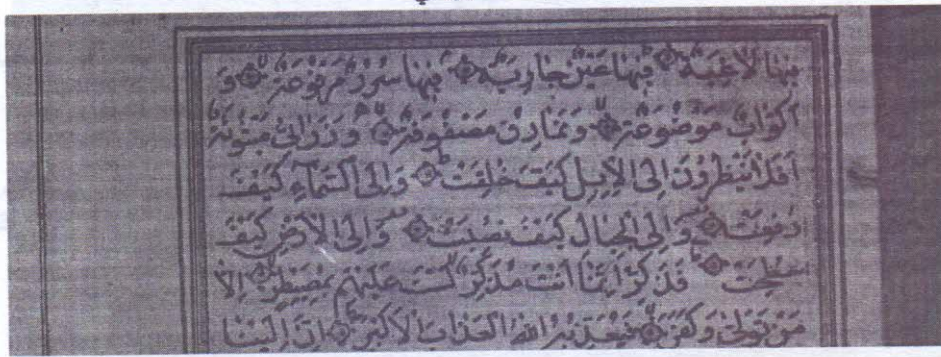 فِيهَا لَاغِيَةً فِيهَا عَيْنٌ جَارِيَةٌ فِيهَا سُرُرٌ مَرْفُوعَةٌ وَ
اَكْوَابٌ مَوْضُوعَةٌ وَنَمَارِقُ مَصْفُوفَةٌ وَزَرَابِيُّ مَبْثُوثَةٌ
اَفَلَا يَنْظُرُونَ اِلَى الْاِبِلِ كَيْفَ خُلِقَتْ وَاِلَى السَّمَاءِ كَيْفَ
رُفِعَتْ وَاِلَى الْجِبَالِ كَيْفَ نُصِبَتْ وَاِلَى الْاَرْضِ كَيْفَ
سُطِحَتْ فَذَكِّرْ اِنَّمَا اَنْتَ مُذَكِّرٌ لَسْتَ عَلَيْهِمْ بِمُصَيْطِرٍ اِلَّا
مَنْ تَوَلَّى وَكَفَرَ فَيُعَذِّبُهُ اللهُ الْعَذَابَ الْاَكْبَرَ اِنَّ اِلَيْنَا